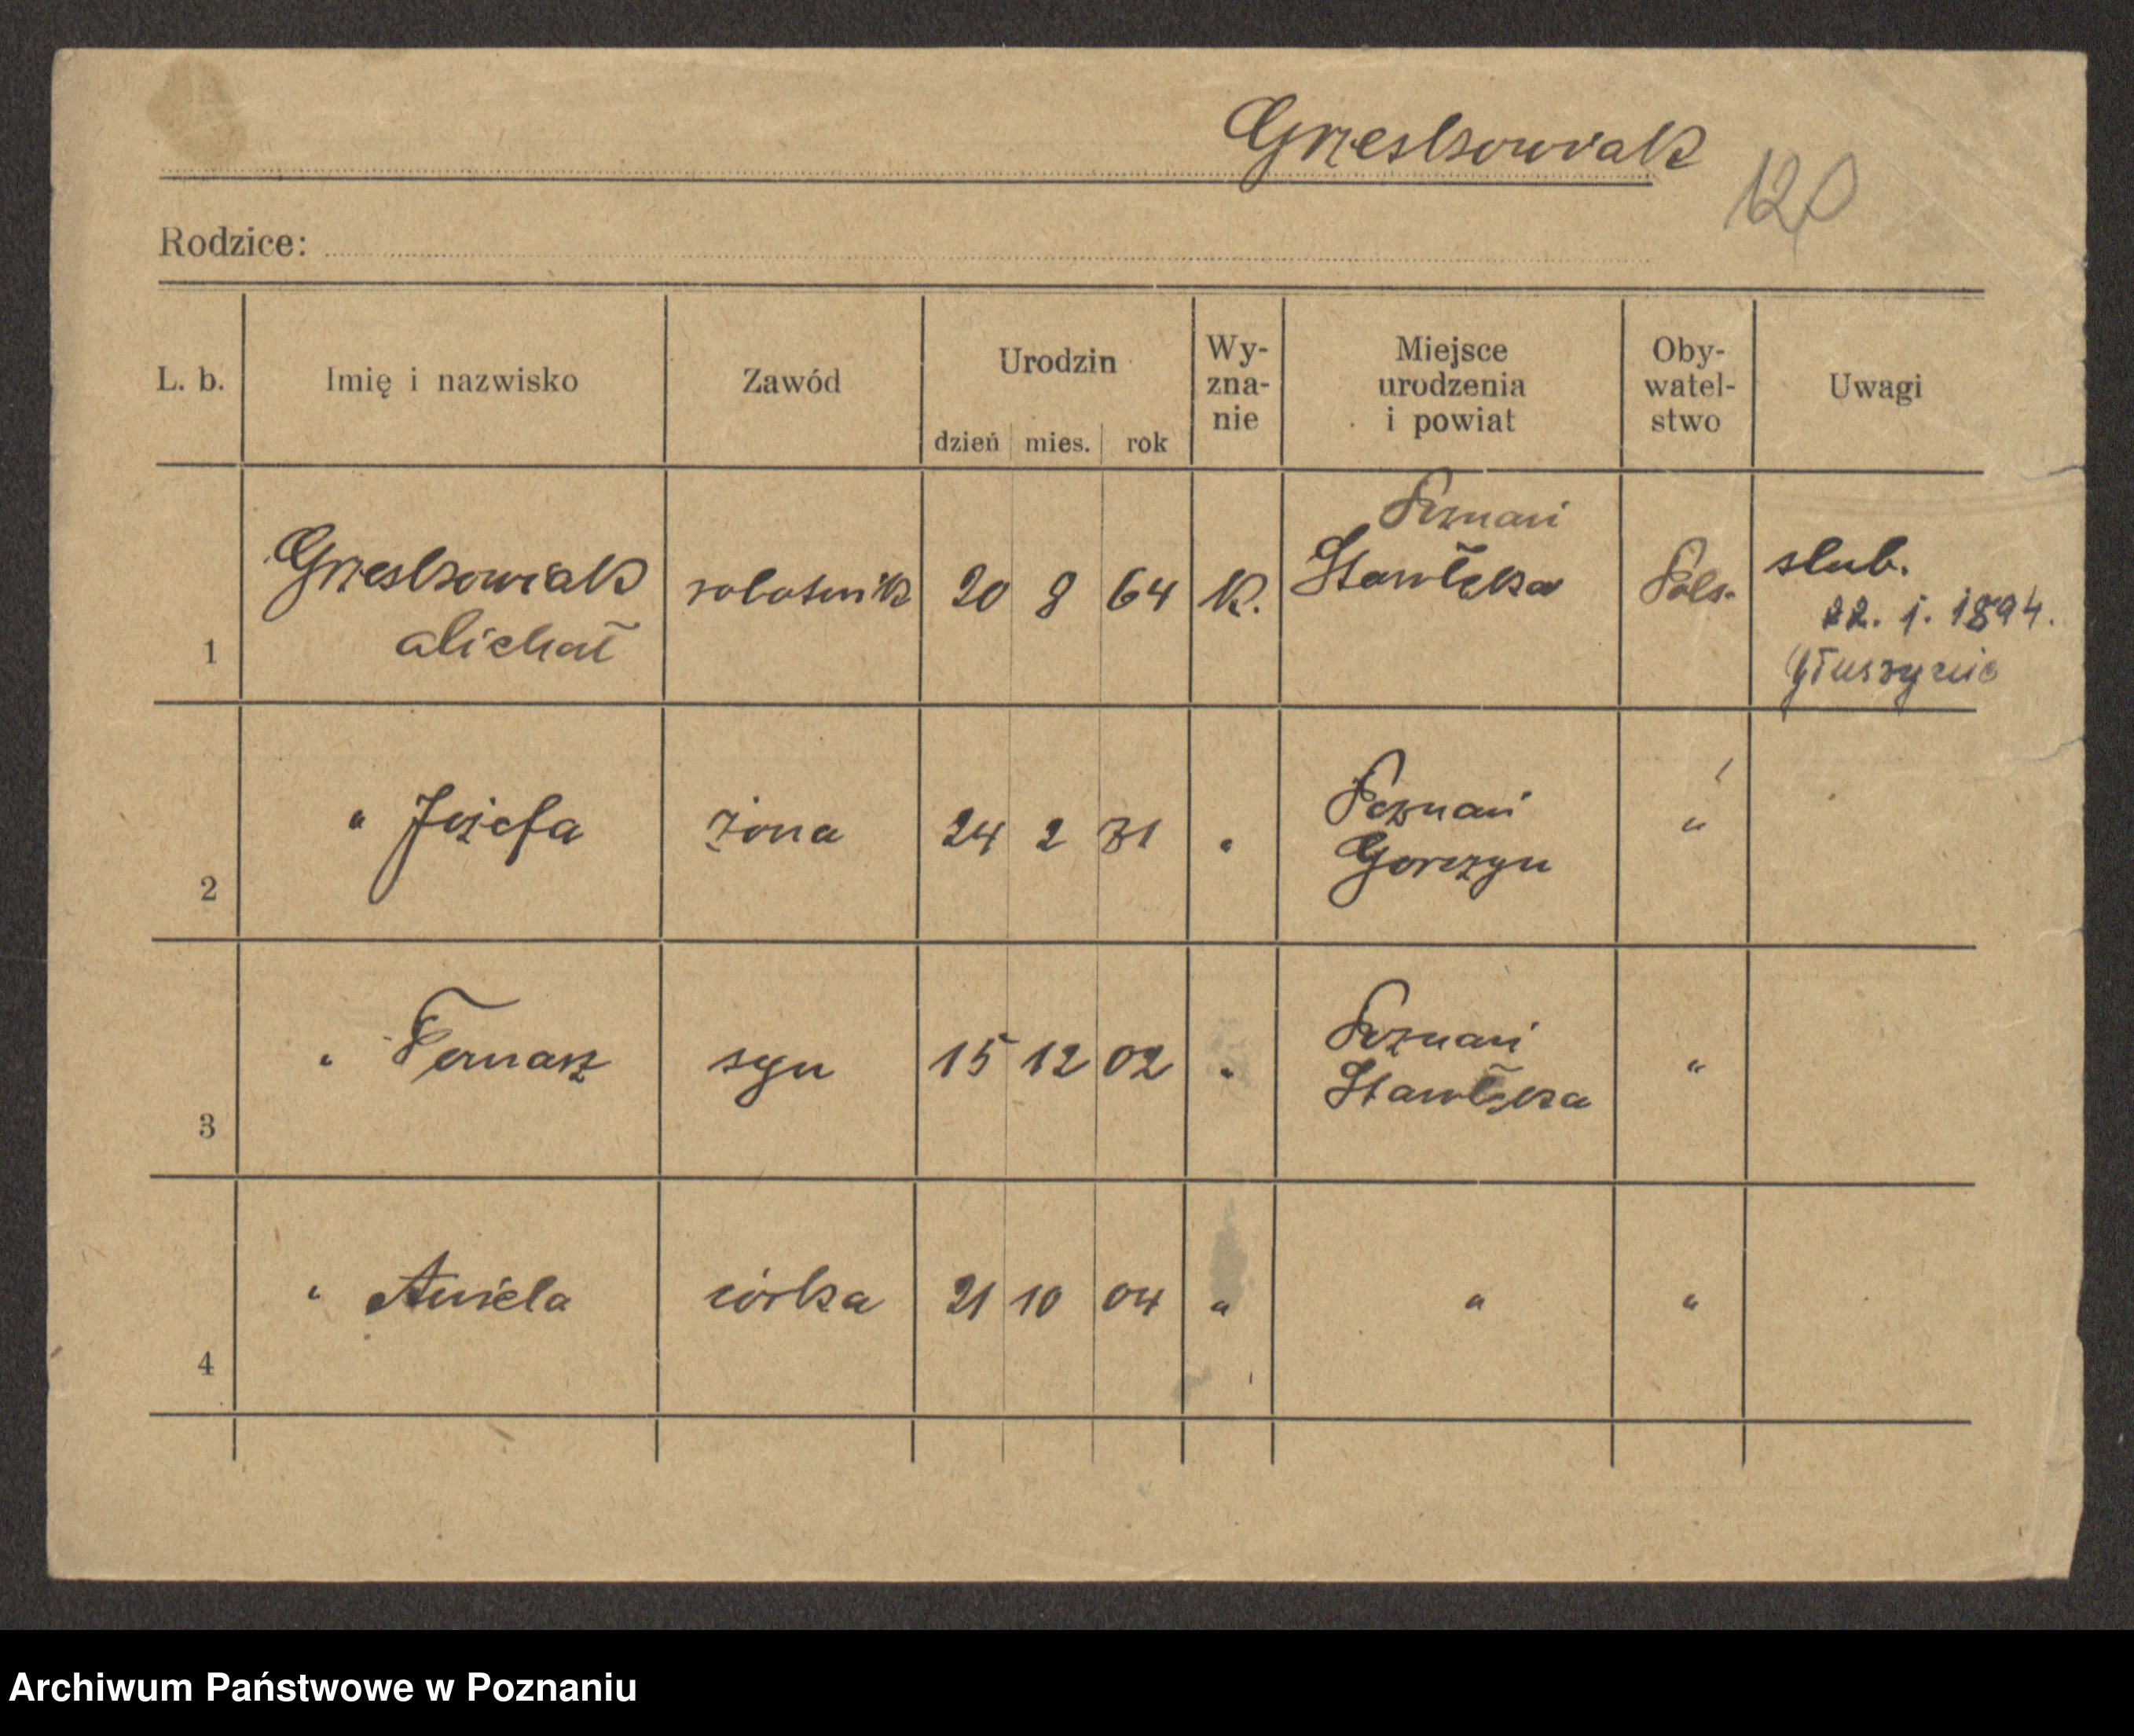 Grześkowiak
120
Rodzice:
L. b.
Imię i nazwisko
Zawód
Urodzin
dzień mies. rok
Wy-
zna-
nie
Miejsce
urodzenia
i powiat
Oby-
watel-
stwo
Uwagi
1
Grześkowiak
Michał
robotnik
20 8 64
K.
Poznań
Starołęka
Pols.
slub.
22. 1. 1894.
Głuszynie
2
" Józefa
żona
24 2 71
"
Poznań
Gorczyn
"
3
" Tomasz
syn
15 12 02
"
Poznań
Starołęka
"
4
" Aniela
córka
21 10 04
"
"
"
Archiwum Państwowe w Poznaniu